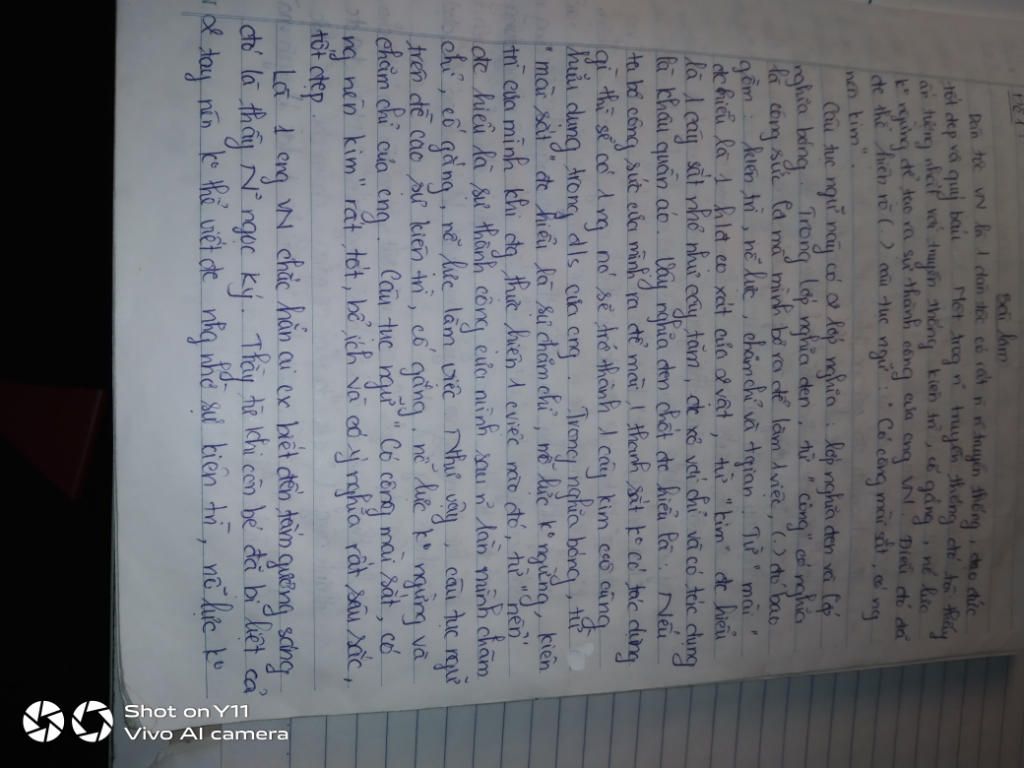 Đề 1
Bài làm
Dân tộc VN là 1 dân tộc có rất n` truyền thống, đạo đức
tốt đẹp và quý báu. Một trog n~ truyền thống đó tôi thấy
ấn tượng nhất với truyền thống kiên trì, cố gắng, nỗ lực
k° ngừng để tạo ra sự thành công của cng VN. Điều đó đã
đc thể hiện rõ ( ) câu tục ngữ : " Có công mài sắt, có ng
nên kim".
Câu tục ngữ này có 2 lớp nghĩa : lớp nghĩa đen và lớp
nghĩa bóng. Trong lớp nghĩa đen, từ "công" có nghĩa
là công sức của mà mình bỏ ra để làm 1 việc, ( ) đó bao
gồm : kiên trì, nỗ lực, chăm chỉ và tgian. Từ "mài"
đc hiểu là 1 hđ cọ xát của 2 vật, từ "kim" đc hiểu
là 1 cây sắt nhỏ như cây tăm, đc xỏ với chỉ và có tác dụng
là khâu quần áo. Vậy nghĩa đen chốt đc hiểu là : Nếu
ta bỏ công sức của mình ra để mài 1 thanh sắt k° có tác dụng
gì thì sẽ có 1 ng nó sẽ trở thành 1 cây kim vô cùng
hữu dụng trong đ/s của cng. Trong nghĩa bóng, từ
"mài sắt" đc hiểu là sự chăm chỉ, nỗ lực k° ngừng, kiên
trì của mình khi đg thực hiện 1 cviệc nào đó, từ "nên"
đc hiểu là sự thành công của mình sau n` lần mình chăm
chỉ, cố gắng, nỗ lực làm việc. Như vậy, câu tục ngữ
trên đề cao sự kiên trì, cố gắng, nỗ lực k° ngừng và
chăm chỉ của cng. Câu tục ngữ "Có công mài sắt, có
ng nên kim" rất tốt, bổ ích và có ý nghĩa rất sâu sắc,
tốt đẹp.
Là 1 cng VN chắc hẳn ai cx biết đến tấm gương sáng
đó là thầy N~ Ngọc Ký. Thầy từ khi còn bé đã bị liệt cả
2 tay nên k° thể viết đc nhg nhờ sự kiên trì, nỗ lực k°